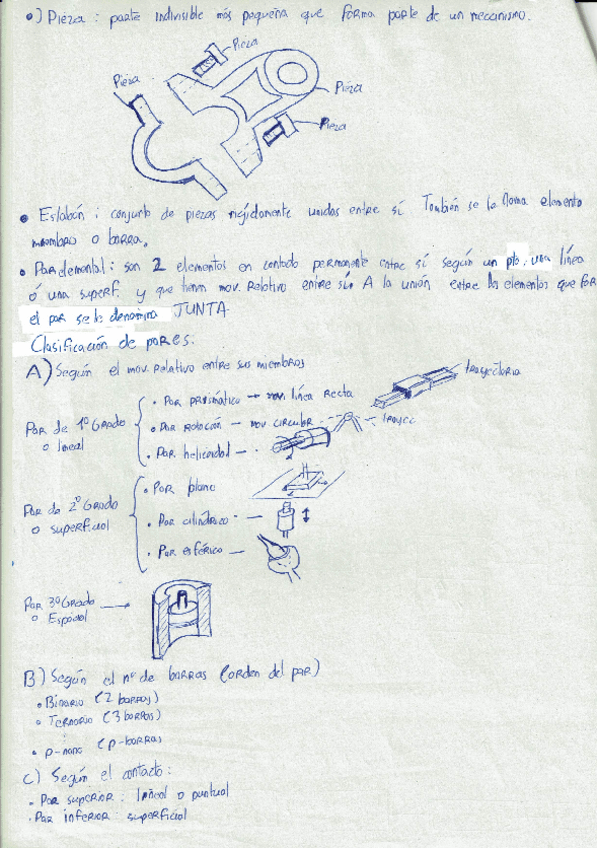 •) Pieza : parte indivisible más pequeña que forma parte de un mecanismo.
Pieza
Pieza
Pieza
Pieza
• Eslabón : conjunto de piezas rígidamente unidas entre sí. También se le llama elemento
miembro o barra.
• Par elemental : son 2 elementos en contacto permanente entre sí según un pto, una línea
ó una superf. y que tienen mov. Relativo entre sí. A la unión entre los elementos que for
el par se le denomina JUNTA.
Clasificación de pares:
A) Según el mov. Relativo entre sus miembros
trayectoria
Par de 1º Grado
o lineal
• Par prismático → mov. línea recta
• Par rotación — mov circular
trayec
• Par helicoidal — •
Par de 2º Grado
o superficial
• Par plano
• Par cilíndrico —
• Par esférico —
Par 3º Grado
o Espacial
B) Según el nº de barras (orden del par)
• Binario (2 barras)
• Ternario (3 barras)
• p-nario (p-barras
C) Según el contacto:
• Par superior : lineal o puntual
• Par inferior : superficial